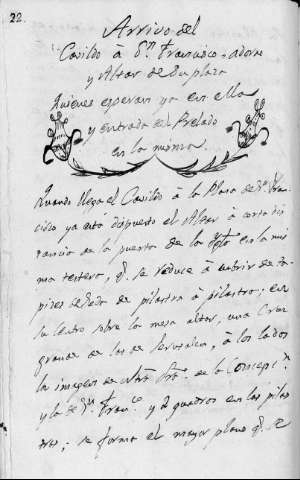 22.
Arrivo del
Cavildo à Sn. Francisco, adorno
y Altar de su plaza
Quienes esperan ya en ella
y entrada del Prelado
en la misma.
Quando llega el Cavildo à la Plaza de Sn. Fran
cisco ya està dispuesto el Altar à corta dis
tancia de la puerta de la Yglª en la mis
ma testera, q. se reduce à cubrir de ta
pizes de Pilastra à pilastra; en
su centro sobre la mesa altar, una Cruz
grande de las de Jerusalen, à los lados
la imagen de Ntrâ Srâ. de la Concepn.
y la de Sn. Franco. y 2 quadros en las pilas
tras; se forma el mayor plano q. se